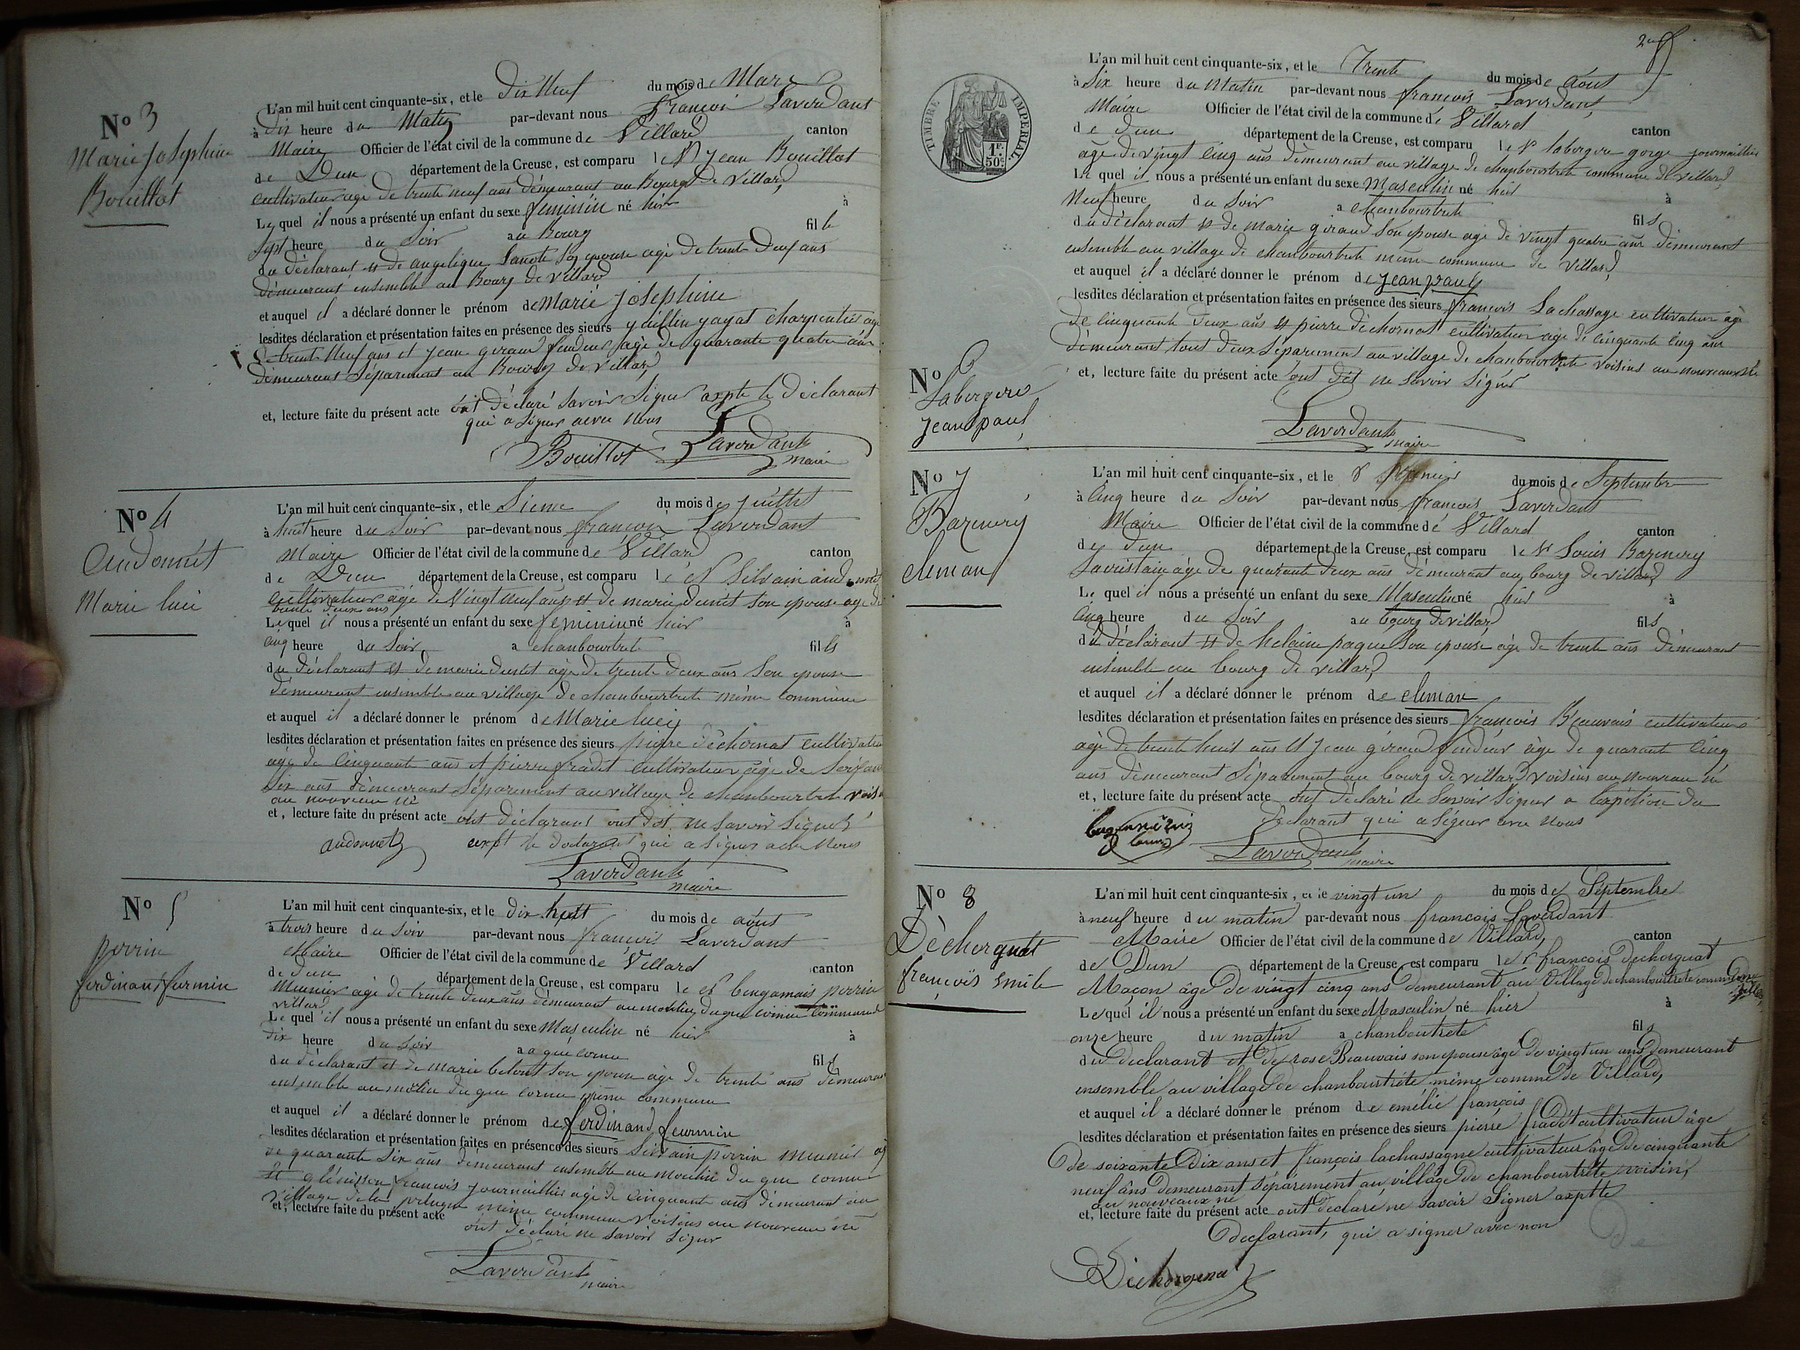 No 3
Marie Josephine
Bouillot
L'an mil huit cent cinquante-six, et le dix Neuf du mois de Mars
à dix heure du Matin par-devant nous françois Laverdant
Maire Officier de l'état civil de la commune de Villard canton
de Dun département de la Creuse, est comparu le Sr Jean Bouillot
cultivateur age de trente neuf ans démeurant au Bourg de Villard
Le quel il nous a présenté un enfant du sexe feminin né hier à
sept heure du Soir au Bourg fille
du déclarant et de angelique son epouse age de trente deux ans
démeurant ensemble au Bourg de Villard
et auquel il a déclaré donner le prénom de Marie josephine
lesdites déclaration et présentation faites en présence des sieurs yayat charpentier age
de trente Neuf ans et jean giraud fendeur age de quarante quatre ans
démeurant Séparement au Bourg de Villard
et, lecture faite du présent acte ont déclaré savoir Signer le déclarant
qui a Signer avec Nous
Bouillot Laverdant
maire
No 4
audonnet
Marie luci
L'an mil huit cent cinquante-six, et le Sieme du mois de juillet
à huit heure du Soir par-devant nous françois Laverdant
Maire Officier de l'état civil de la commune de Villard canton
de Dun département de la Creuse, est comparu le Sr Silvain
cultivateur age de Vingt neuf ans et de marie son epouse age de
trente deux ans
Le quel il nous a présenté un enfant du sexe feminin né hier à
cinq heure du Soir a chanbourtrete fille
du déclarant et de marie age de trente deux ans Son epouse
démeurant ensemble au village de chanbourtrete même Commune
et auquel il a déclaré donner le prénom de Marie lucie
lesdites déclaration et présentation faites en présence des sieurs pierre déchornat cultivateur
age de Cinquante ans et pierre fradet cultivateur age de soixante
six ans démeurant Séparement au village de chanbourtret
au nouveau né
et, lecture faite du présent acte ont déclarant ont dit ne Savoir Signer
audonnet le declarant qui a Signer avec Nous
Laverdant
maire
No 5
perrin
ferdinand furmin
L'an mil huit cent cinquante-six, et le dix huit du mois de août
à trois heure du Soir par-devant nous françois Laverdant
Maire Officier de l'état civil de la commune de Villard canton
de dun département de la Creuse, est comparu le Sr bengamais perrin
Meunier age de trente deux ans démeurant au moulin du gue cornu commune
villard
Le quel il nous a présenté un enfant du sexe Masculin né hier à
dix heure du Soir a gué cornu fils
du déclarant et de marie son epouse age de trente ans démeurant
ensemble au molin du gue cornu même commune
et auquel il a déclaré donner le prénom de ferdinand feurmin
lesdites déclaration et présentation faites en présence des sieurs Silvain perrin meunié age
de quarante six ans démeurant ensemble au moulin du gue cornu
et françois journaillier age de Cinquante ans démeurant au
village même commune voisins au nouveau né
et, lecture faite du présent acte ont déclaré ne savoir Signer
Laverdant
maire
TIMBRE IMPERIAL
1F.
50c.
No 6
Labergere
jean paul
L'an mil huit cent cinquante-six, et le Trente du mois de août
à Six heure du Matin par-devant nous françois Laverdant
Maire Officier de l'état civil de la commune de Villard canton
de dun département de la Creuse, est comparu le Sr labergere gorge journaillier
age de vingt Cinq ans démeurant au village de chanbourtrete commune de villard
Le quel il nous a présenté un enfant du sexe Masculin né hier à
Neuf heure du Soir a chanbourtrete fils
du déclarant et de marie giraud son epouse age de vingt quatre ans démeurant
ensemble au village de chanbourtrete même commune de Villard
et auquel il a déclaré donner le prénom de jean paul
lesdites déclaration et présentation faites en présence des sieurs françois Lachassagne cultivateur age
de cinquante deux ans et pierre déchornat cultivateur age de cinquante cinq ans
démeurant tout deux Séparement au village de chanbourtrete voisins au nouveaux né
et, lecture faite du présent acte ont dit ne savoir Signer
Laverdant
maire
No 7
Bazenery
eliman
L'an mil huit cent cinquante-six, et le du mois de Septembre
à Cinq heure du Soir par-devant nous françois Laverdant
Maire Officier de l'état civil de la commune de Villard canton
de dun département de la Creuse, est comparu le Sr Louis Bazenery
Sacristain age de quarante deux ans démeurant au bourg de villard
Le quel il nous a présenté un enfant du sexe Masculin né hier à
Cinq heure du Soir au bourg de villard fils
du déclarant et de helaine paque Son epouse age de trente ans démeurant
ensemble au bourg de villard
et auquel il a déclaré donner le prénom de eliman
lesdites déclaration et présentation faites en présence des sieurs françois Beauvais cultivateur
age de trente huit ans et jean giraud fendeur age de quarante Cinq
ans démeurant Séparement au bourg de villard voisins au nouveau né
et, lecture faite du présent acte ont déclaré ne Savoir Signer a du
déclarant qui a Signer avec nous
Laverdant
maire
No 8
Déchorgnat
françois Emile
L'an mil huit cent cinquante-six, et le vingt un du mois de Septembre
à neuf heure du matin par-devant nous françois Laverdant
Maire Officier de l'état civil de la commune de Villard, canton
de Dun département de la Creuse, est comparu le Sr françois Dechorgnat
Maçon âgé de vingt cinq ans demeurant au Village de chanboutrete commune
Le quel il nous a présenté un enfant du sexe Masculin né hier à
onze heure du matin a chanboutrete fils
du declarant et de rose Beauvais son epouse âgé de vingt un ans demeurant
ensemble au village de chanbourtrete même comme de Villard,
et auquel il a déclaré donner le prénom de emélie françois
lesdites déclaration et présentation faites en présence des sieurs pierre fradet cultivateur âgé
de soixante Dix ans et françois lachassagne cultivateur âgé de cinquante
neuf âns demeurant séparément au village de chanbourtrete voisin,
au nouveaux né
et, lecture faite du présent acte ont declaré ne savoir Signer axptte
declarant, qui a signer avec nou
Déchorgnat